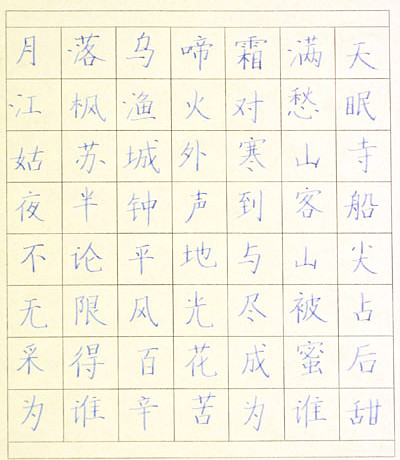 月落乌啼霜满天
江枫渔火对愁眠
姑苏城外寒山寺
夜半钟声到客船
不论平地与山尖
无限风光尽被占
采得百花成蜜后
为谁辛苦为谁甜